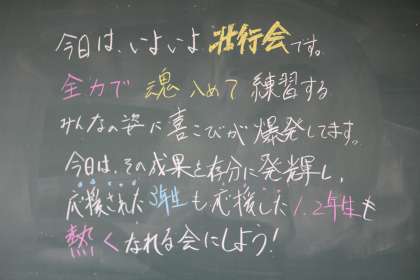 今日は、いよいよ壮行会です。
全力で 魂込めて 練習する
みんなの姿に喜こびが爆発してます。
今日は、その成果を存分に発揮し、
応援された3年生も応援した1.2年生も
熱くなれる会にしよう!